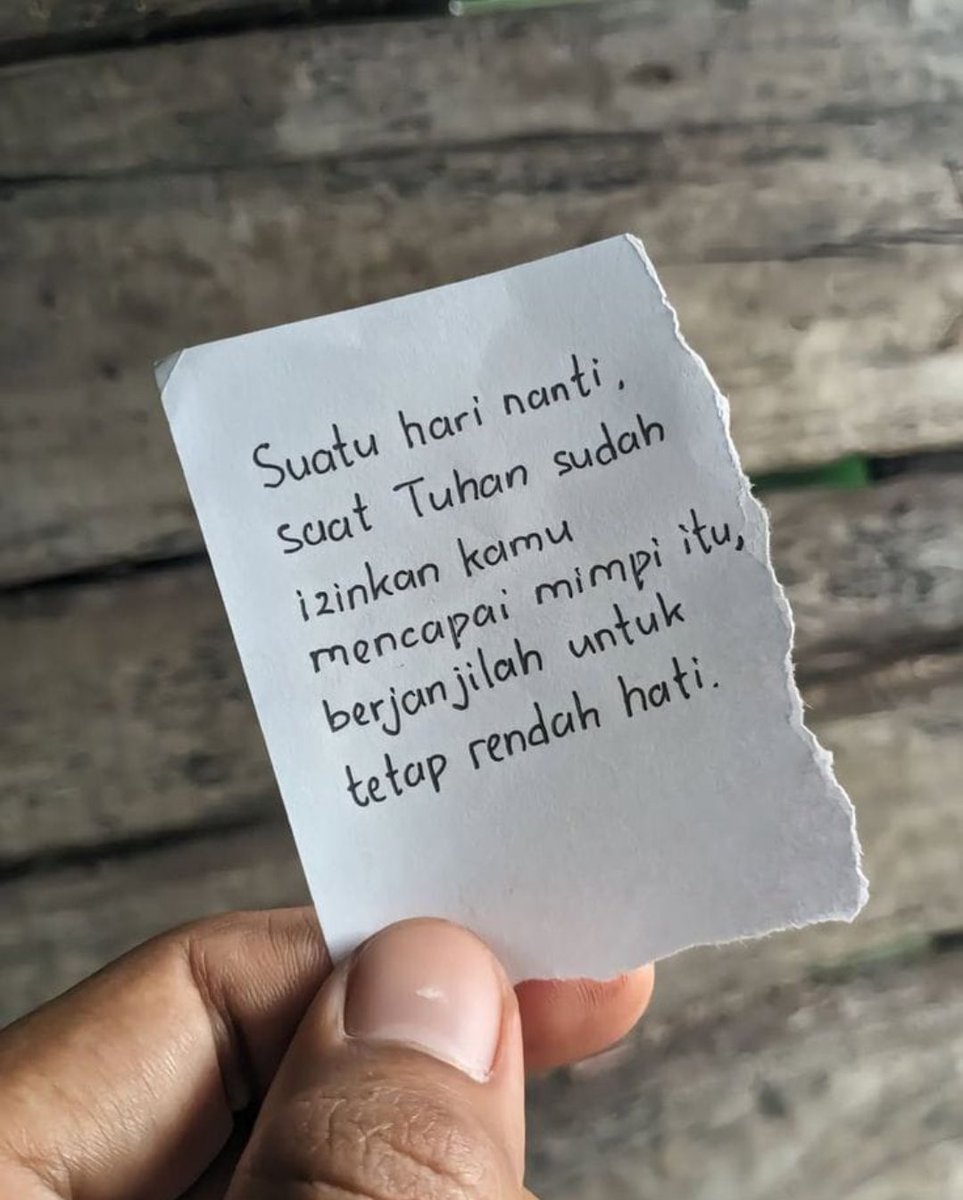 Suatu hari nanti,
saat Tuhan sudah
izinkan kamu
mencapai mimpi itu,
berjanjilah untuk
tetap rendah hati.